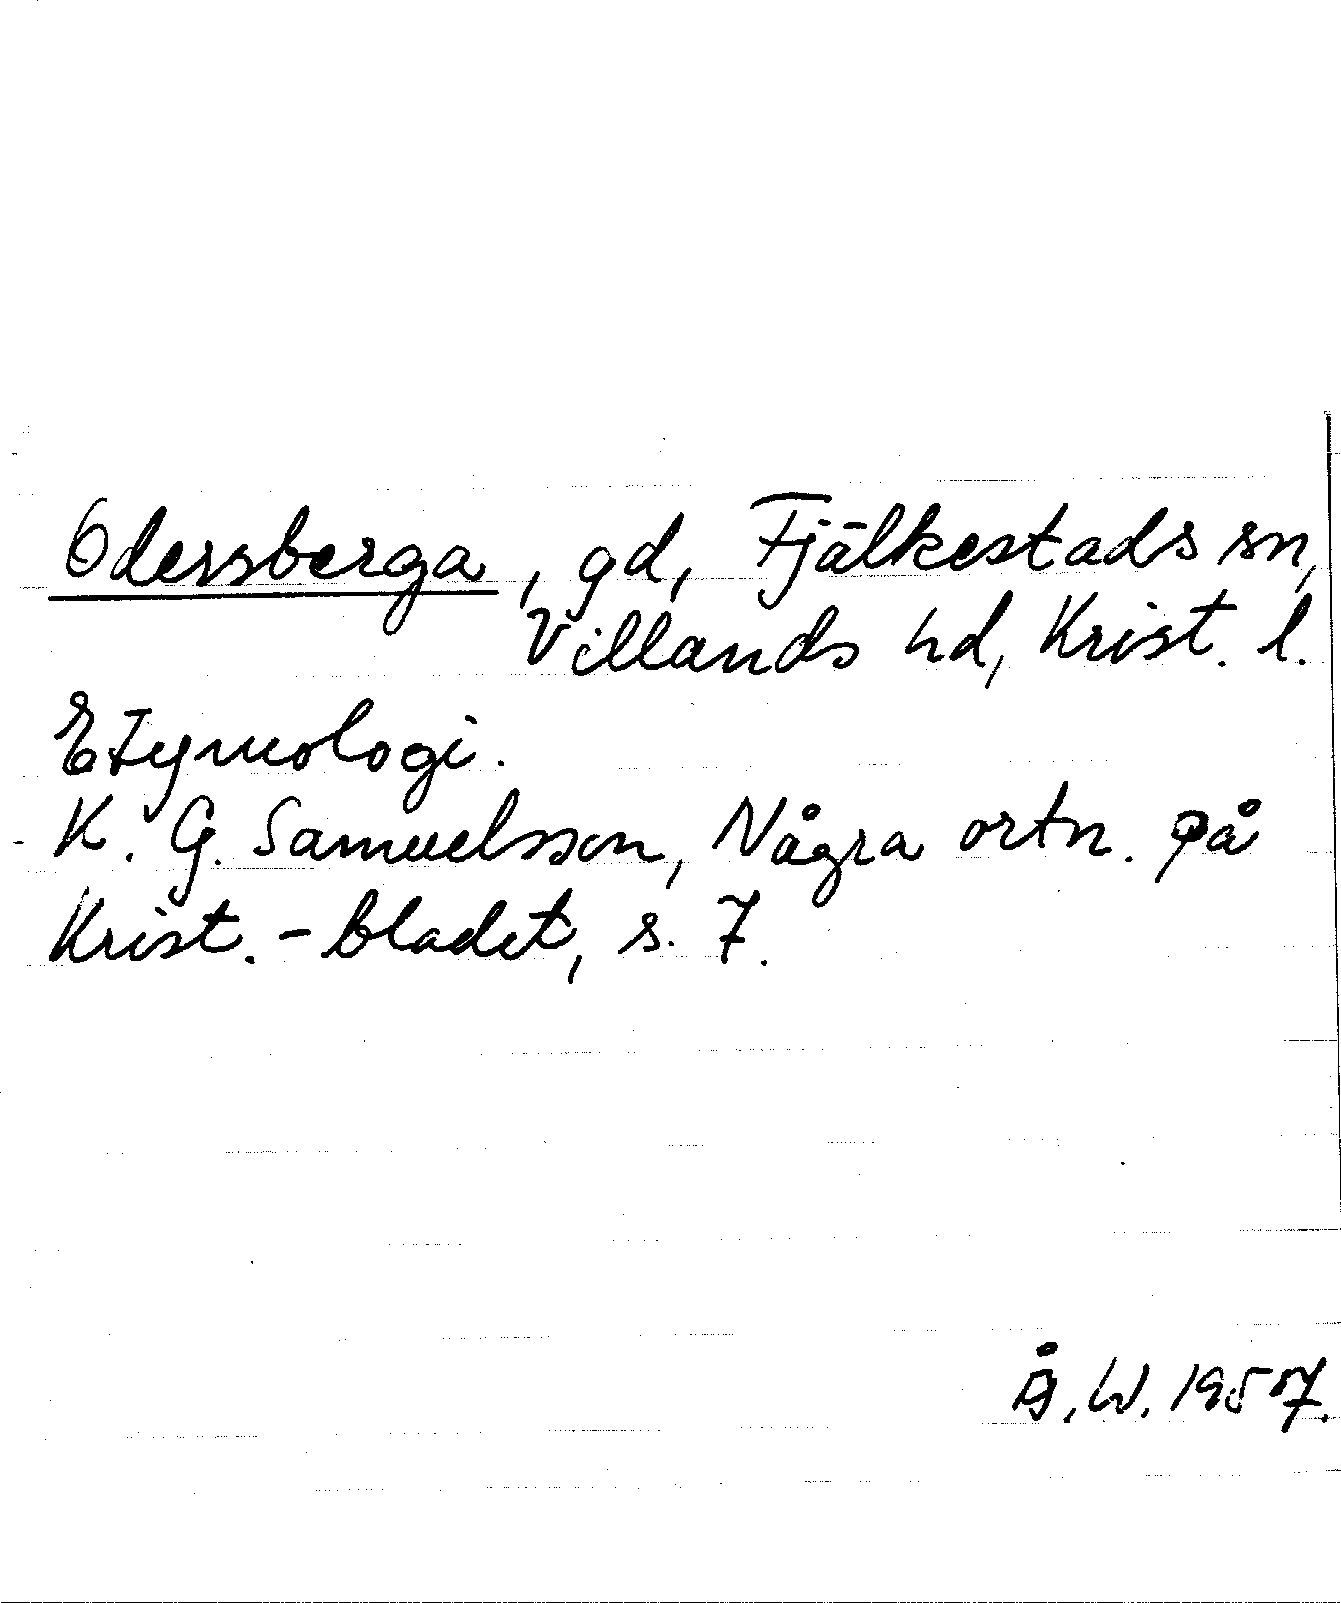 Odersberga, gd, Fjälkestads sn,
Villands hd, Krist. l.
Etymologi.
K. G. Samuelsson, Några ortn. på
Krist.-bladet, s. 7.
Å.W. 1957.